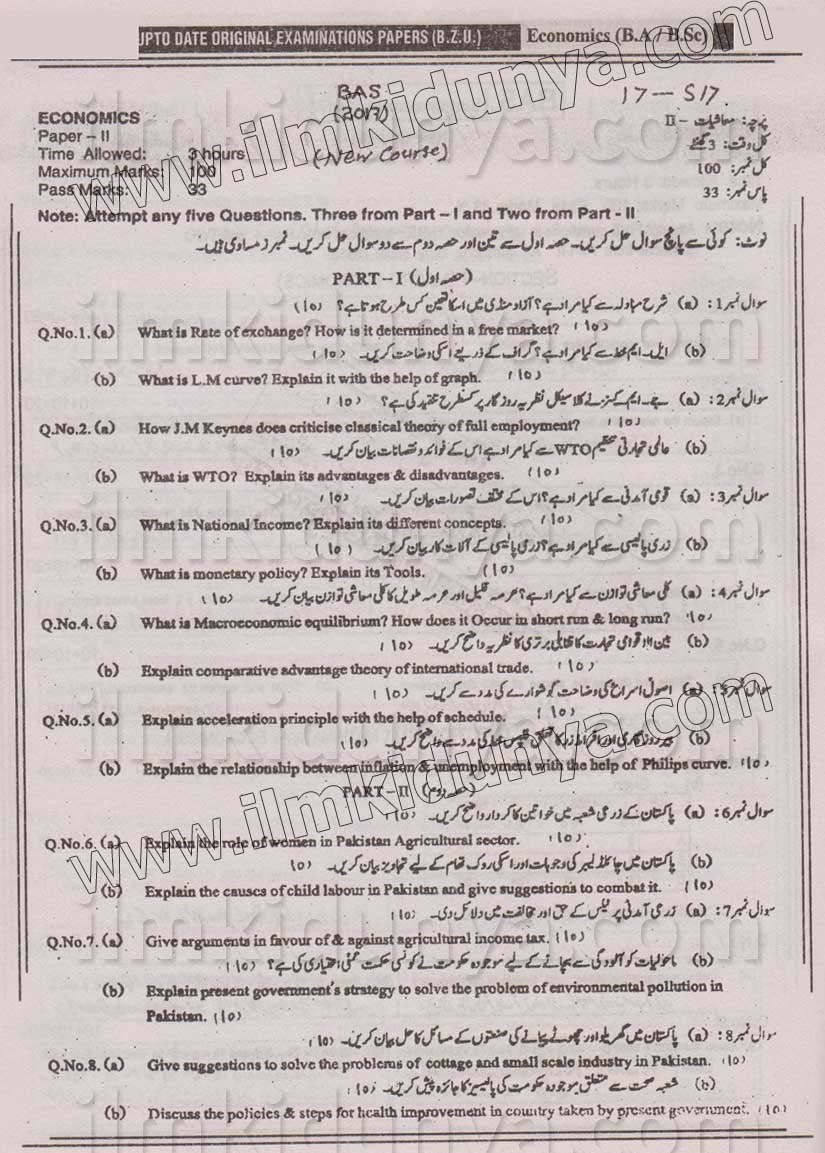 UPTO DATE ORIGINAL EXAMINATIONS PAPERS (B.Z.U.) Economics (B.A / B.Sc)
BAS
(2017)
17-S17
ECONOMICS
Paper – II
Time Allowed: 3 hours
(New Course)
Maximum Marks: 100
Pass Marks: 33
پرچہ: معاشیات – II
کل وقت: 3 گھنٹے
کل نمبر: 100
پاس نمبر: 33
Note: Attempt any five Questions. Three from Part – I and Two from Part - II
نوٹ: کوئی سے پانچ سوال حل کریں۔ حصہ اول سے تین اور حصہ دوم سے دو سوال حل کریں۔ نمبرز مساوی ہیں۔
PART – I (حصہ اول)
سوال نمبر 1: (a) شرح مبادلہ سے کیا مراد ہے؟ آزاد منڈی میں اسکا تعین کس طرح ہوتا ہے؟ (10)
Q.No.1. (a) What is Rate of exchange? How is it determined in a free market? (10)
(b) ایل۔ ایم خط سے کیا مراد ہے؟ گراف کے ذریعے اسکی وضاحت کریں۔ (10)
(b) What is L.M curve? Explain it with the help of graph. (10)
سوال نمبر 2: (a) جے۔ ایم کینز نے کلاسیکل نظریہ روزگار پر کسطرح تنقید کی ہے؟ (10)
Q.No.2. (a) How J.M Keynes does criticise classical theory of full employment? (10)
(b) عالمی تجارتی تنظیم WTO سے کیا مراد ہے اس کے فوائد و نقصانات بیان کریں۔ (10)
(b) What is WTO? Explain its advantages & disadvantages. (10)
سوال نمبر 3: (a) قومی آمدنی سے کیا مراد ہے؟ اس کے مختلف تصورات بیان کریں۔ (10)
Q.No.3. (a) What is National Income? Explain its different concepts. (10)
(b) زری پالیسی سے کیا مراد ہے؟ زری پالیسی کے آلات کار بیان کریں۔ (10)
(b) What is monetary policy? Explain its Tools. (10)
سوال نمبر 4: (a) کلی معاشی توازن سے کیا مراد ہے؟ عرصہ قلیل اور عرصہ طویل کا کلی معاشی توازن بیان کریں۔ (10)
Q.No.4. (a) What is Macroeconomic equilibrium? How does it Occur in short run & long run? (10)
(b) بین الاقوامی تجارت کا تقابلی برتری کا نظریہ واضح کریں۔ (10)
(b) Explain comparative advantage theory of international trade. (10)
سوال نمبر 5: (a) اصول اسراع کی وضاحت گوشوارے کی مدد سے کریں۔ (10)
Q.No.5. (a) Explain acceleration principle with the help of schedule. (10)
(b) بیروزگاری اور افراط زر کا تعلق فلپس خط کی مدد سے واضح کریں۔ (10)
(b) Explain the relationship between inflation & unemployment with the help of Philips curve. (10)
PART – II (حصہ دوم)
سوال نمبر 6: (a) پاکستان کے زرعی شعبہ میں خواتین کا کردار واضح کریں۔ (10)
Q.No.6. (a) Explain the role of women in Pakistan Agricultural sector. (10)
(b) پاکستان میں چائلڈ لیبر کی وجوہات اور اسکی روک تھام کے لیے تجاویز بیان کریں۔ (10)
(b) Explain the causes of child labour in Pakistan and give suggestions to combat it. (10)
سوال نمبر 7: (a) زرعی آمدنی پر ٹیکس کے حق اور مخالفت میں دلائل دی۔ (10)
Q.No.7. (a) Give arguments in favour of & against agricultural income tax. (10)
(b) ماحولیات کو آلودگی سے بچانے کے لیے موجودہ حکومت نے کونسی حکمت عملی اختیار کی ہے؟ (10)
(b) Explain present government's strategy to solve the problem of environmental pollution in
Pakistan. (10)
سوال نمبر 8: (a) پاکستان میں گھریلو اور چھوٹے پیمانے کی صنعتوں کے مسائل کا حل بیان کریں۔ (10)
Q.No.8. (a) Give suggestions to solve the problems of cottage and small scale industry in Pakistan. (10)
(b) شعبہ صحت سے متعلق موجودہ حکومت کی پالیسیز کا جائزہ پیش کریں۔ (10)
(b) Discuss the policies & steps for health improvement in country taken by present government. (10)
www.ilmkidunya.com